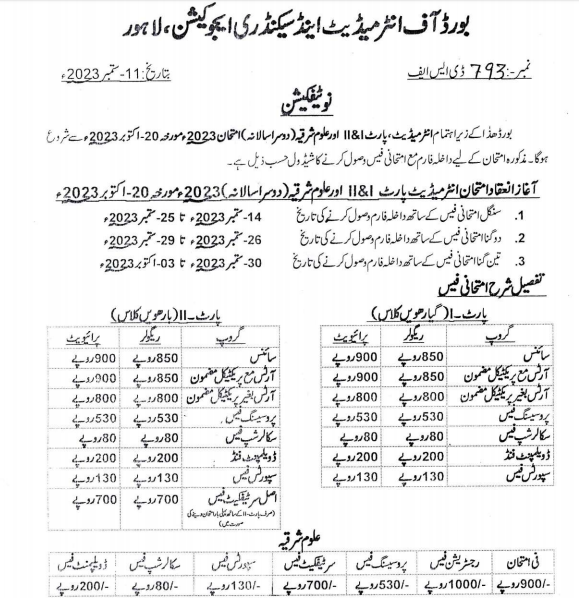 بورڈ آف انٹرمیڈیٹ اینڈ سیکنڈری ایجوکیشن، لاہور
نمبر:- 793 ڈی ایس ایف
بتاریخ: 11-ستمبر 2023ء
نوٹیفکیشن
بورڈ ھذا کے زیر اہتمام انٹرمیڈیٹ، پارٹ II&I اور علوم شرقیہ (دوسرا سالانہ) امتحان 2023ء مورخہ 20-اکتوبر 2023ء سے شروع
ہوگا۔ مذکورہ امتحان کے لیے داخلہ فارم مع امتحانی فیس وصول کرنے کا شیڈول حسب ذیل ہے۔
آغاز انعقاد امتحان انٹرمیڈیٹ پارٹ II&I اور علوم شرقیہ (دوسرا سالانہ) 2023ء مورخہ 20-اکتوبر 2023ء
1. سنگل امتحانی فیس کے ساتھ داخلہ فارم وصول کرنے کی تاریخ 14-ستمبر 2023ء تا 25-ستمبر 2023ء
2. دوگنا امتحانی فیس کے ساتھ داخلہ فارم وصول کرنے کی تاریخ 26-ستمبر 2023ء تا 29-ستمبر 2023ء
3. تین گنا امتحانی فیس کے ساتھ داخلہ فارم وصول کرنے کی تاریخ 30-ستمبر 2023ء تا 03-اکتوبر 2023ء
تفصیل شرح امتحانی فیس
پارٹ-I (گیارھویں کلاس)
گروپ ریگولر پرائیویٹ
سائنس 850روپے 900روپے
آرٹس مع پریکٹیکل مضمون 850روپے 900روپے
آرٹس بغیر پریکٹیکل مضمون 800روپے 800روپے
پروسیسنگ فیس 530روپے 530روپے
سکالرشپ فیس 80روپے 80روپے
ڈویلپمنٹ فنڈ 200روپے 200روپے
سپورٹس فیس 130روپے 130روپے
پارٹ-II (بارھویں کلاس)
گروپ ریگولر پرائیویٹ
سائنس 850روپے 900روپے
آرٹس مع پریکٹیکل مضمون 850روپے 900روپے
آرٹس بغیر پریکٹیکل مضمون 800روپے 800روپے
پروسیسنگ فیس 530روپے 530روپے
سکالرشپ فیس 80روپے 80روپے
ڈویلپمنٹ فنڈ 200روپے 200روپے
سپورٹس فیس 130روپے 130روپے
اصل سرٹیفکیٹ فیس 700روپے 700روپے
(صرف پارٹ-II کے ساتھ پہلی بار امتحان دینے کی
صورت میں)
علوم شرقیہ
فی امتحان رجسٹریشن فیس پروسیسنگ فیس سرٹیفکیٹ فیس سپورٹس فیس سکالرشپ فیس ڈویلپمنٹ فیس
900/-روپے 1000/-روپے 530/-روپے 700/-روپے 130/-روپے 80/-روپے 200/-روپے